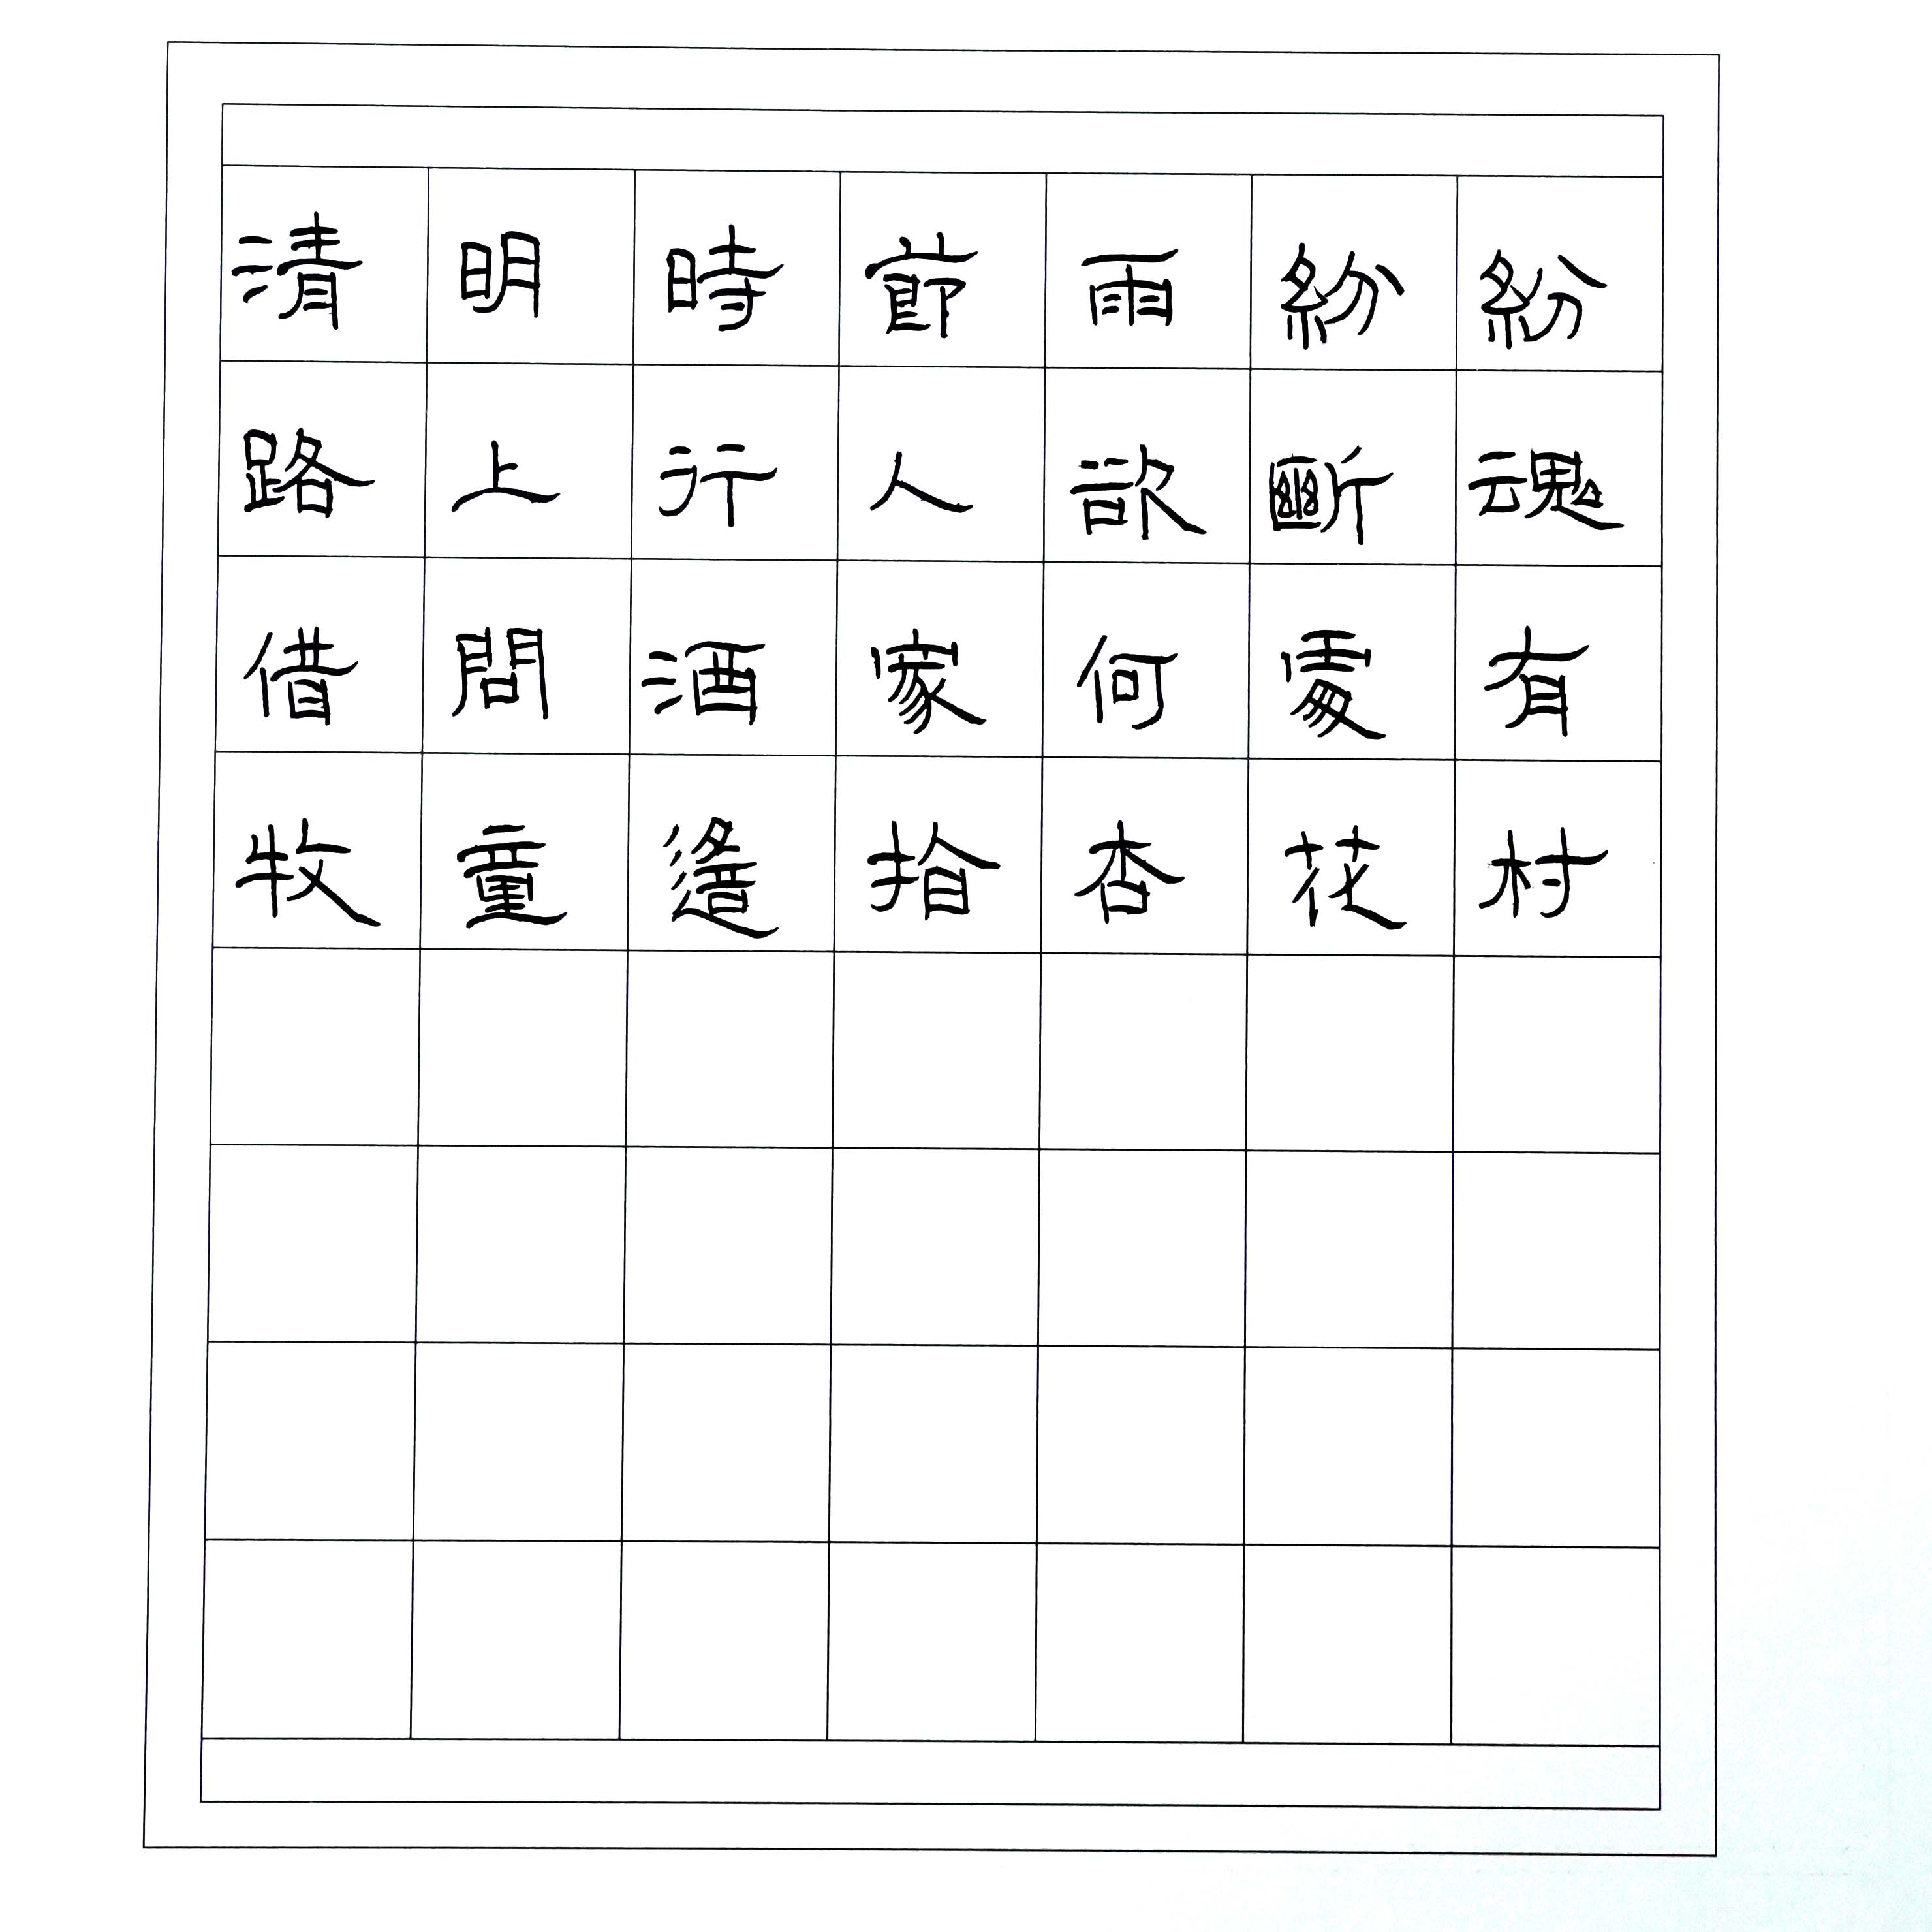 清明時節雨紛紛
路上行人欲斷魂
借問酒家何處有
牧童遙指杏花村